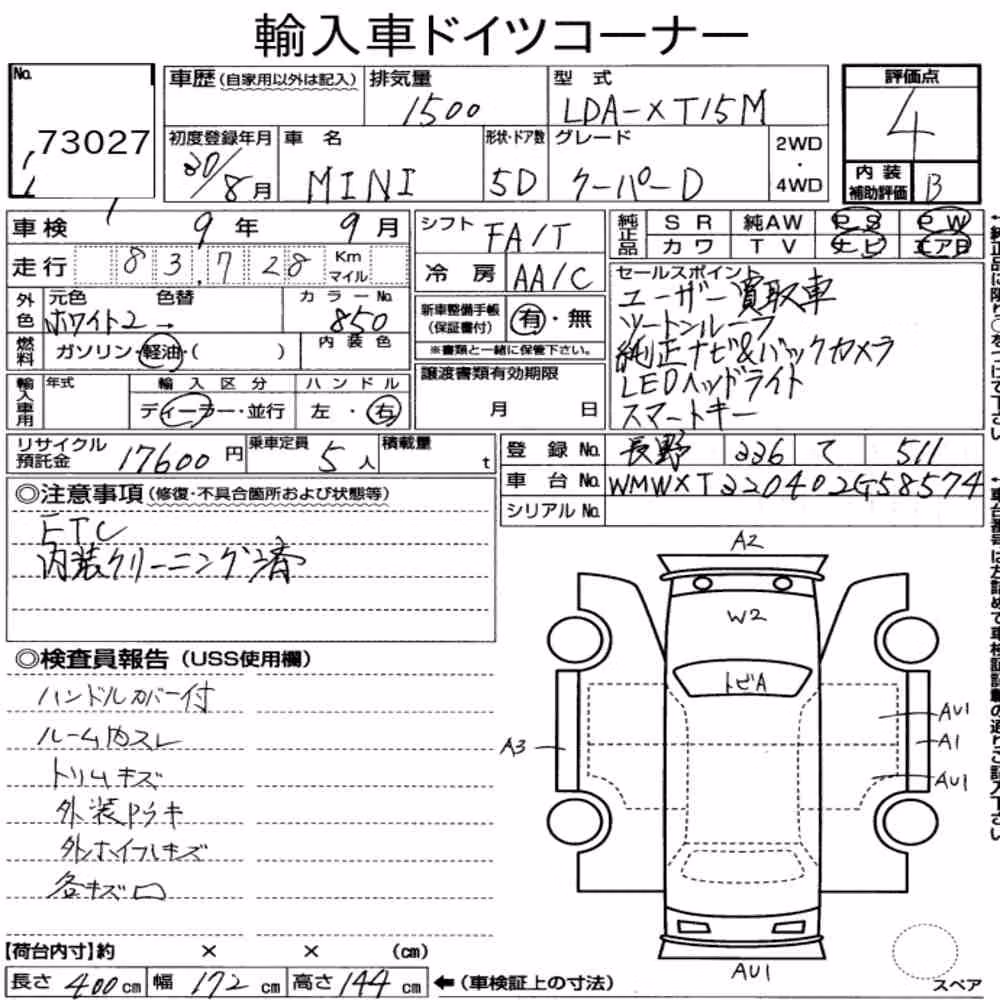 輸入車ドイツコーナー
No. 73027
車歴(自家用以外は記入)
排気量 1500
型式 LDA-XT15M
評価点 4
内装補助評価 B
初度登録年月 30/8月
車名 MINI
形状・ドア数 5D
グレード クーパーD
2WD・4WD
車検 9年 9月
シフト FA/T
純正品 SR 純AW PS PW
カワ TV ナビ エアB
走行 83,728 Km マイル
冷房 AA/C
外色 元色 ホワイト2 → 色替
カラーNo. 850
新車整備手帳(保証書付) 有・無
※書類と一緒に保管下さい。
燃料 ガソリン・軽油・( )
内装色
輸入車用 年式
輸入区分 ディーラー・並行
ハンドル 左・右
譲渡書類有効期限 月 日
セールスポイント
ユーザー買取車
ツートンルーフ
純正ナビ&バックカメラ
LEDヘッドライト
スマートキー
リサイクル預託金 17600円
乗車定員 5人
積載量 t
登録No. 長野 336 て 511
車台No. WMWXT320402G58574
シリアルNo.
◎注意事項(修復・不具合箇所および状態等)
ETC
内装クリーニング済
◎検査員報告(USS使用欄)
ハンドルカバー付
ルーム内スレ
トリムキズ
外装Pラキ
外ホイールキズ
各キズ
A2
W2
トビA
AU1
A3
A1
AU1
AU1
スペア
【荷台内寸】約 × × (cm)
長さ 400cm 幅 172cm 高さ 144cm ←(車検証上の寸法)